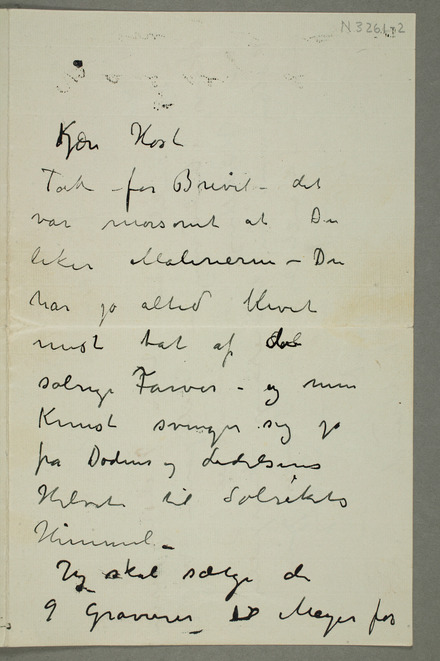 N 3261-2
Kjære Host
Tak for Brevet – det
var morsomt at Du
liker Malerierne – Du
har jo altid blevet
mest tat af de
solrige Farver – og min
Kunst svinger sig jo
fra Dødens og Ledelsens
Helvete til Solrikets
Himmel –
Jeg skal sælge de
9 Graverer Meyer for